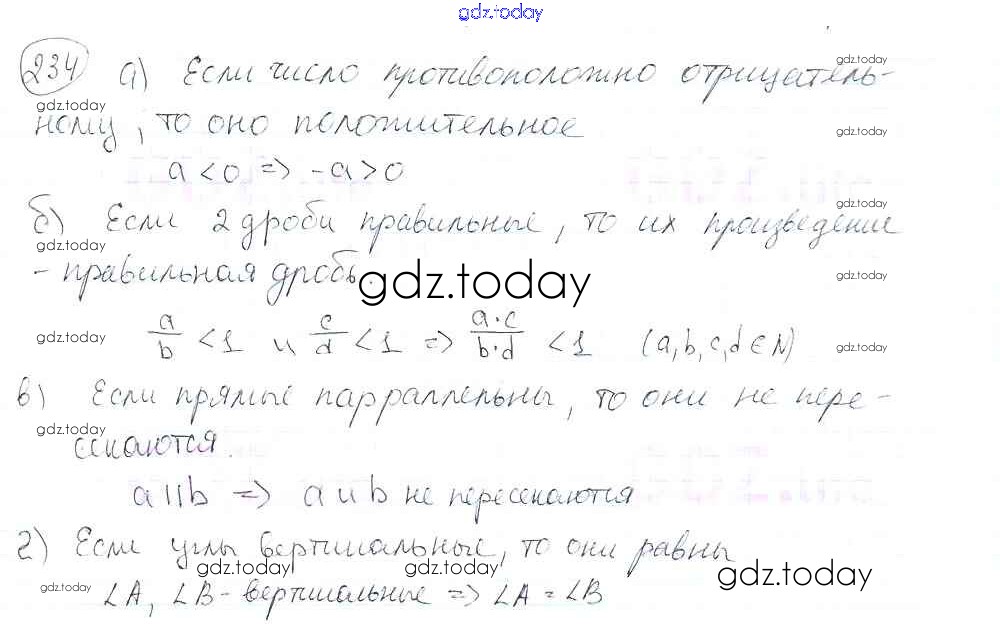 gdz.today
234 а) Если число противоположно отрицатель-
gdz.today
gdz.today
ному, то оно положительное
gdz.today
a < 0 => -a > 0
gdz.today
б) Если 2 дроби правильные, то их произведение
gdz.today
- правильная дробь.
gdz.today
gdz.today
a/b < 1 и c/d < 1 => a·c/b·d < 1 (a,b,c,d ∈ N)
gdz.today
gdz.today
в) Если прямые парраллельны, то они не пере-
gdz.today
секаются.
a || b => a и b не пересекаются
г) Если углы вертикальные, то они равны
gdz.today gdz.today gdz.today
gdz.today
∠A, ∠B - вертикальные => ∠A = ∠B